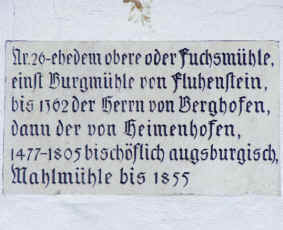 Nr. 26-ehedem obere oder Fuchsmühle,
einst Burgmühle von Fluhenstein,
bis 1362 der Herrn von Berghofen,
dann der von Heimenhofen,
1477-1805 bischöflich augsburgisch,
Mahlmühle bis 1855